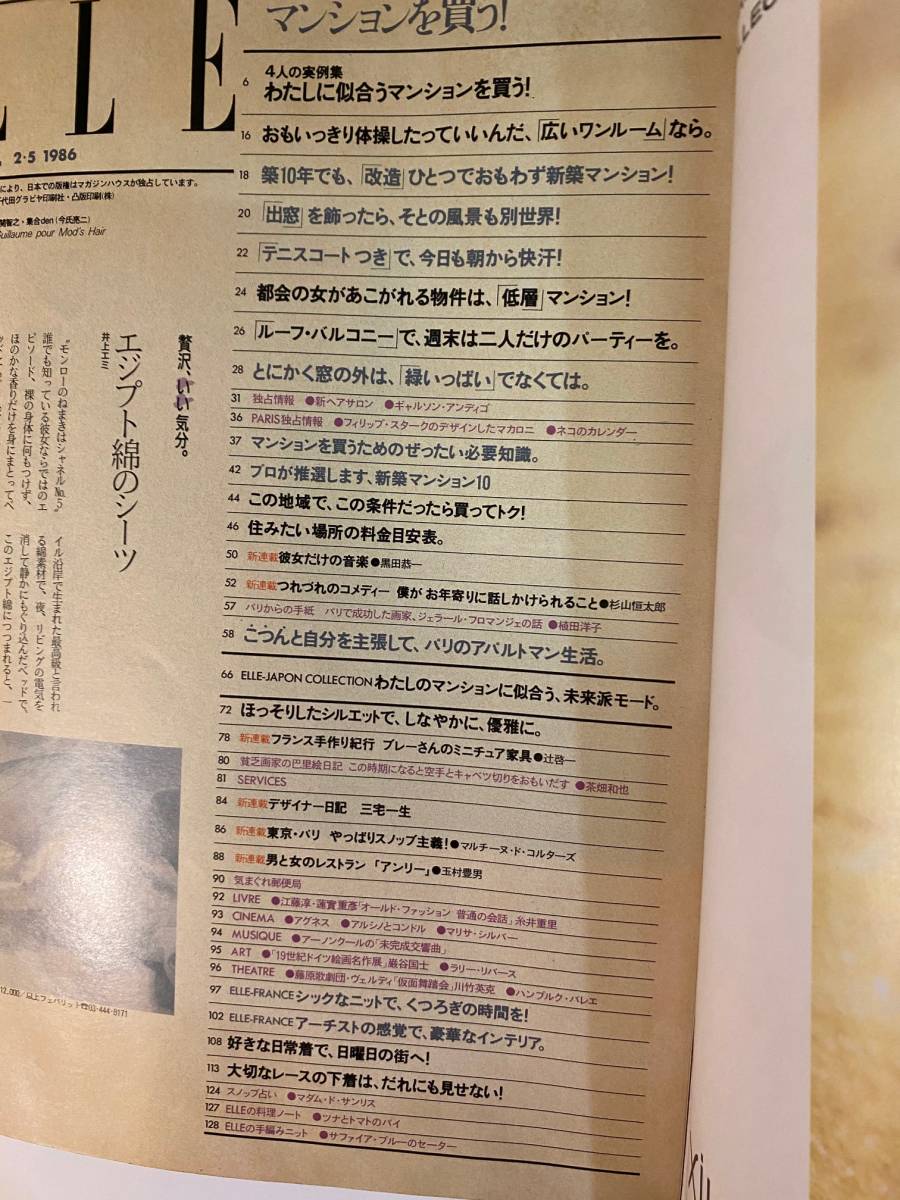 ELLE
2・5 1986
により、日本での版権はマガジンハウスが独占しています。
千代田グラビヤ印刷社・凸版印刷(株)
関智之・集合den(今氏亮二)
Guillaume pour Mod's Hair
贅沢、いい気分。
エジプト綿のシーツ
井上エミ
“モンローのねまきはシャネルNo.5”
誰でも知っている彼女ならではのエ
ピソード、裸の身体に何もつけず、
ほのかな香りだけを身にまとってベ
イル沿岸で生まれた最高級と言われ
る綿素材で、夜、リビングの電気を
消して静かにもぐり込んだベッドで、
このエジプト綿につつまれると、一
マンションを買う!
4人の実例集
6 わたしに似合うマンションを買う!
16 おもいっきり体操したっていいんだ、「広いワンルーム」なら。
18 築10年でも、「改造」ひとつでおもわず新築マンション!
20 「出窓」を飾ったら、そとの風景も別世界!
22 「テニスコートつき」で、今日も朝から快汗!
24 都会の女があこがれる物件は、「低層」マンション!
26 「ルーフ・バルコニー」で、週末は二人だけのパーティーを。
28 とにかく窓の外は、「緑いっぱい」でなくては。
31 独占情報 ●新ヘアサロン ●ギャルソン・アンティゴ
36 PARIS独占情報 ●フィリップ・スタークのデザインしたマカロニ ●ネコのカレンダー
37 マンションを買うためのぜったい必要知識。
42 プロが推選します、新築マンション10
44 この地域で、この条件だったら買ってトク!
46 住みたい場所の料金目安表。
50 新連載 彼女だけの音楽●黒田恭一
52 新連載 つれづれのコメディー 僕が お年寄りに話しかけられること●杉山恒太郎
57 パリからの手紙 パリで成功した画家、ジェラール・フロマンジェの話 ●植田洋子
58 こつんと自分を主張して、パリのアパルトマン生活。
66 ELLE-JAPON COLLECTION わたしのマンションに似合う、未来派モード。
72 ほっそりしたシルエットで、しなやかに、優雅に。
78 新連載 フランス手作り紀行 ブレーさんのミニチュア家具●辻啓一
80 貧乏画家の巴里絵日記 この時期になると空手とキャベツ切りをおもいだす ●茶畑和也
81 SERVICES
84 新連載 デザイナー日記 三宅一生
86 新連載 東京・パリ やっぱりスノッブ主義!●マルチーヌ・ド・コルターズ
88 新連載 男と女のレストラン 「アンリー」●玉村豊男
90 気まぐれ郵便局
92 LIVRE ●江藤淳・蓮實重彦「オールド・ファッション 普通の会話」糸井重里
93 CINEMA ●アグネス ●アルシノとコンドル ●マリサ・シルバー
94 MUSIQUE ●アーノンクールの「未完成交響曲」
95 ART ●「19世紀ドイツ絵画名作展」巌谷国士 ●ラリー・リバース
96 THEATRE ●藤原歌劇団・ヴェルディ「仮面舞踏会」川竹英克 ●ハンブルク・バレエ
97 ELLE-FRANCE シックなニットで、くつろぎの時間を!
102 ELLE-FRANCE アーチストの感覚で、豪華なインテリア。
108 好きな日常着で、日曜日の街へ!
113 大切なレースの下着は、だれにも見せない!
124 スノッブ占い ●マダム・ド・サンリス
127 ELLEの料理ノート ●ツナとトマトのパイ
128 ELLEの手編みニット ●サファイア・ブルーのセーター
12,000/以上フェバリット☎03-444-8171